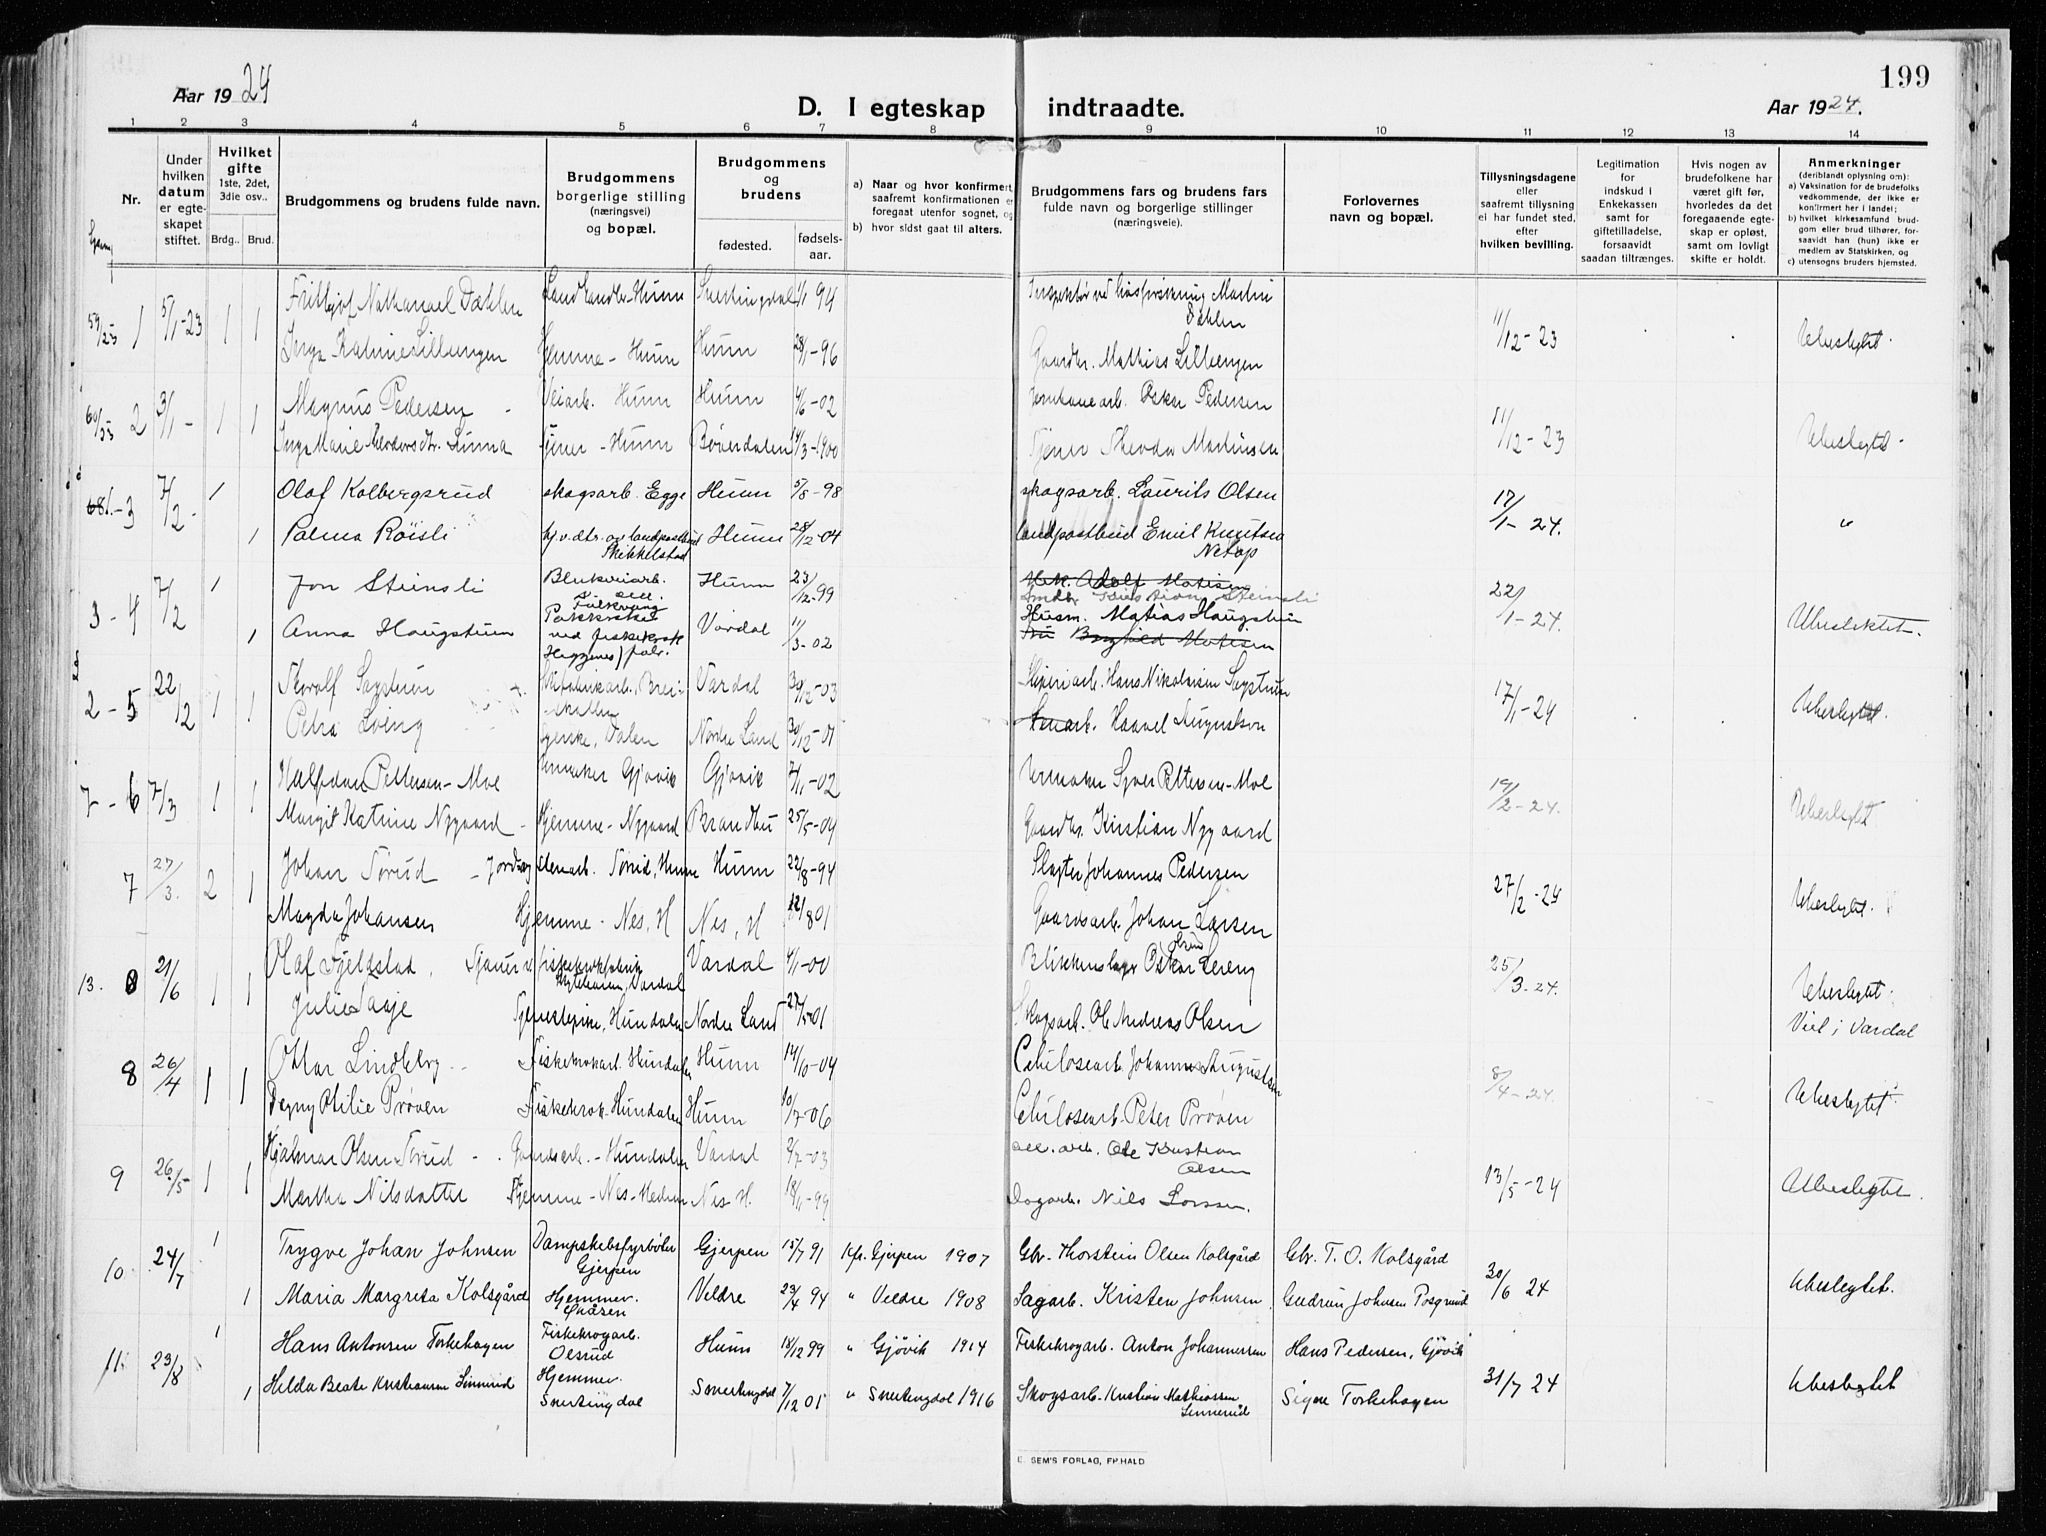 199
Aar 1924
D. I egteskap indtraadte.
Aar 1924.
1 2 3 4 5 6 7 8 9 10 11 12 13 14
Nr.
Under hvilken datum er egteskapet stiftet.
Hvilket gifte 1ste, 2det, 3die osv..
Brdg.. Brud.
Brudgommens og brudens fulde navn.
Brudgommens borgerlige stilling (næringsvei) og bopæl.
Brudgommens og brudens
fødested. fødselsaar.
a) Naar og hvor konfirmert, saafremt konfirmationen er foregaat utenfor sognet, og
b) hvor sidst gaat til alters.
Brudgommens fars og brudens fars fulde navn og borgerlige stillinger (næringsveie).
Forlovernes navn og bopæl.
Tillysningsdagene eller saafremt tillysning ei har fundet sted, efter hvilken bevilling.
Legitimation for indskud i Enkekassen samt for giftetilladelse, forsaavidt saadan tiltrænges.
Hvis nogen av brudefolkene har været gift før, hvorledes da det foregaaende egteskap er opløst, samt om lovligt skifte er holdt.
Anmerkninger (deriblandt oplysning om):
a) Vaksination for de brudefolks vedkommende, der ikke er konfirmert her i landet;
b) hvilket kirkesamfund brudgom eller brud tilhører, forsaavidt han (hun) ikke er medlem av Statskirken, og
c) utensogns bruders hjemsted.
1 5/1-23 1 1 Frithjof Nathanael Dæhlen Landhandler Hunn Snertingdal 94 Inspektør ved Martin Dæhlen 11/12-23 Ubeslegtet.
Inga Katrine Lilleengen Hjemme - Hunn Hunn 28/1-96 Gaardbr. Mathias Lilleengen
2 3/1- 1 1 Magnus Pedersen Veiarb. Hunn Hunn 4/6-02 Jernbanearb. Oskar Pedersen 11/12-23 Ubeslegtet.
Inga Marie Linna Tjener - Hunn Bøverdalen 14/3-1900 Tjener Theodor Martinsen
3 7/2- 1 Olaf Kolbergsrud skogsarb. Egge Hunn 5/8-98 skogsarb. Laurits Olsen 17/1-24. "
1 Palma Røisli hj.v.dtr. av landpostbud Skikkelstad Hunn 28/12-04 landpostbud Emil Knutsen Netop
3-4 7/2 1 Jon Steinsli Hunn 23/12-99 Adolf Matisen Kristian Steinsli 22/1-24. Ubeslektet.
1 Anna Haugstuen Pakkerske ved fiskekrok Heggenes/fabr. Vardal 11/3-02 Husm. Matias Haugstuen Borghild Matisen
2-5 22/12 1 1 Torolf Sagstuen Vardal 30/12-03 Sliperiarb. Hans Nikolaisen Sagstuen 17/1-24 Ubeslegtet.
Petra Dalen Nordre Land 30/12-01 Haavel Augustson
7-6 7/3 1 1 Halfdan Pettersen-Moe Urmaker Gjøvik Gjøvik 7/1-02 Urmaker Syver Pettersen-Moe 19/2-24. Ubeslegtet
Margit Katrine Nygaard Hjemme - Nygaard Brandbu 25/5-04 Gaardbr. Kristian Nygaard
7 27/3. 2 1 Johan Tørud - Jord og stenarb. Tørud, Hunn Hunn 22/8-94 Slagter Johannes Pedersen 27/2-24 Ubeslegtet.
Magda Johansen Hjemme - Nes, H Nes, H 01 Gaardsarb. Johan Larsen
13. 21/6 1 1 Olaf Fjeldstad, Vardal 4/1-00 Blikkenslager Oskar Olsen Lereng 25/3-24. Ubeslegtet.
Julie Saxje Tjenestepike, Hundalen Nordre Land 27/5-01 Skogsarb. Ole Andreas Olsen Viet i Vardal
8 26/4 1 1 Ottar Lindberg Fiskekrokarb. Hundalen Hunn 14/10-04 Celulosearb. Johannes Augustsen 8/4-24. Ubeslegtet.
Dagny Otilie Prøven Fiskekrok. Hundalen Hunn 10/7-06 Celulosearb. Peter Prøven
9 26/5 1 1 Hjalmar Olsen Tørud - Gaardsarb. - Hundalen Vardal 2/7-03 cel. arb. Ole Kristian Olsen 13/5-24 Ubeslegtet.
Martha Nilsdatter Hjemme - Nes - Hedm Nes H. 18/1-99 Dagarb. Nils Larsen.
10 24/7 1 Trygve Johan Johnsen Dampskibsfyrbøter Gjerpen Gjerpen 15/7 91 Kfr. Gjerpen 1907 Gbr. Thorstein Olsen Kolsgård Gbr. T. O. Kolsgård 30/6 24 Ubeslegtet.
1 Maria Margreta Kolsgård Hjemmev. Skåsen Veldre 23/4 94 " Veldre 1908 Sagarb. Kristen Johnsen Gudrun Johnsen Posgrund
11. 23/8 1 Hans Antonsen Torkehagen Fiskekrogarb. Olsrud Hunn 18/12 99 " Gjøvik 1914 Fiskekrogarb. Anton Johannessen Hans Pedersen, Gjøvik 31/7 24 Ubeslegtet
1 Helda Beate Kristiansen Sinnerud Hjemmev. Snertingdal Snertingdal 7/12 01 " Snertingdal 1916 Skogsarb. Kristian Mathiassen Sinnerud Signe Torkehagen
E. SEM'S FORLAG, FR.HALD